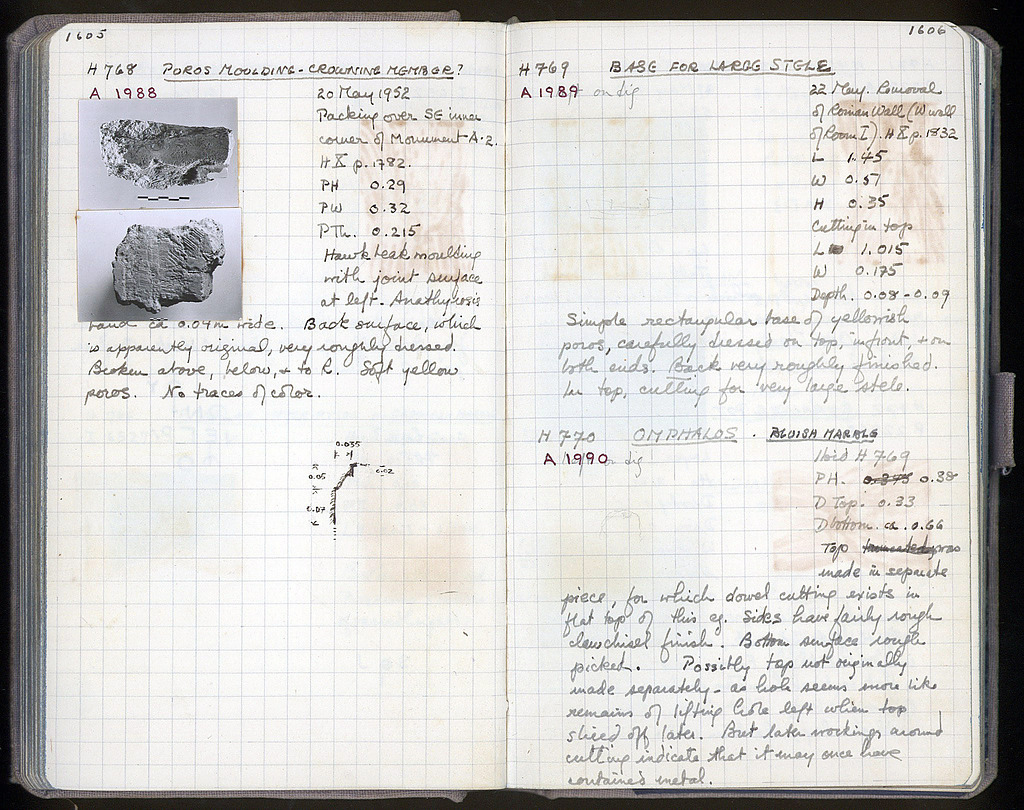 1605
H 768 POROS MOULDING - CROWNING MEMBER?
A 1988
20 May 1952
Packing over SE inner
corner of Monument A-2.
H X p. 1782.
PH 0.29
PW 0.32
P Th. 0.215
Hawk beak moulding
with joint surface
at left. Anathyrosis
band ca 0.04m wide. Back surface, which
is apparently original, very roughly dressed.
Broken above, below, + to R. Soft yellow
poros. No traces of color.
0.035
0.02
0.05
0.07
1606
H 769 BASE FOR LARGE STELE
A 1989 on dig
22 May. Removal
of Roman Wall (W wall
of Room I). H X p. 1832
L 1.45
W 0.57
H 0.35
Cutting in top
L 1.015
W 0.175
Depth. 0.08 - 0.09
Simple rectangular base of yellowish
poros, carefully dressed on top, in front, + on
both ends. Back very roughly finished.
In top, cutting for very large stele.
H 770 OMPHALOS. BLUISH MARBLE
A 1990 on dig
Ibid H 769
PH. 0.375 0.38
D Top. 0.33
D bottom. ca. 0.66
Top truncated, was
made in separate
piece, for which dowel cutting exists in
flat top of this eg. Sides have fairly rough
claw chisel finish. Bottom surface rough
picked. Possibly top not originally
made separately - as hole seems more like
remains of lifting hole left when top
sliced off later. But later workings around
cutting indicate that it may once have
contained metal.